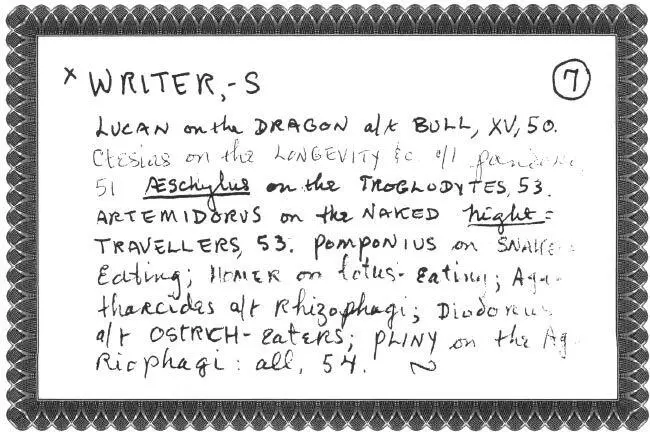 x WRITER,-S 7
LUCAN on the DRAGON a/t BULL, XV, 50.
Ctesias on the LONGEVITY &c o/t
51 ÆSchylus on the TROGLODYTES, 53.
ARTEMIDORUS on the NAKED night=
TRAVELLERS, 53. POMPONIUS on SNAKE-
Eating; HOMER on lotus-Eating; Aga-
tharcides a/t Rhizophagi; Diodorus
a/t OSTRICH-EATERS; PLINY on the Ag-
Riophagi: all, 54.